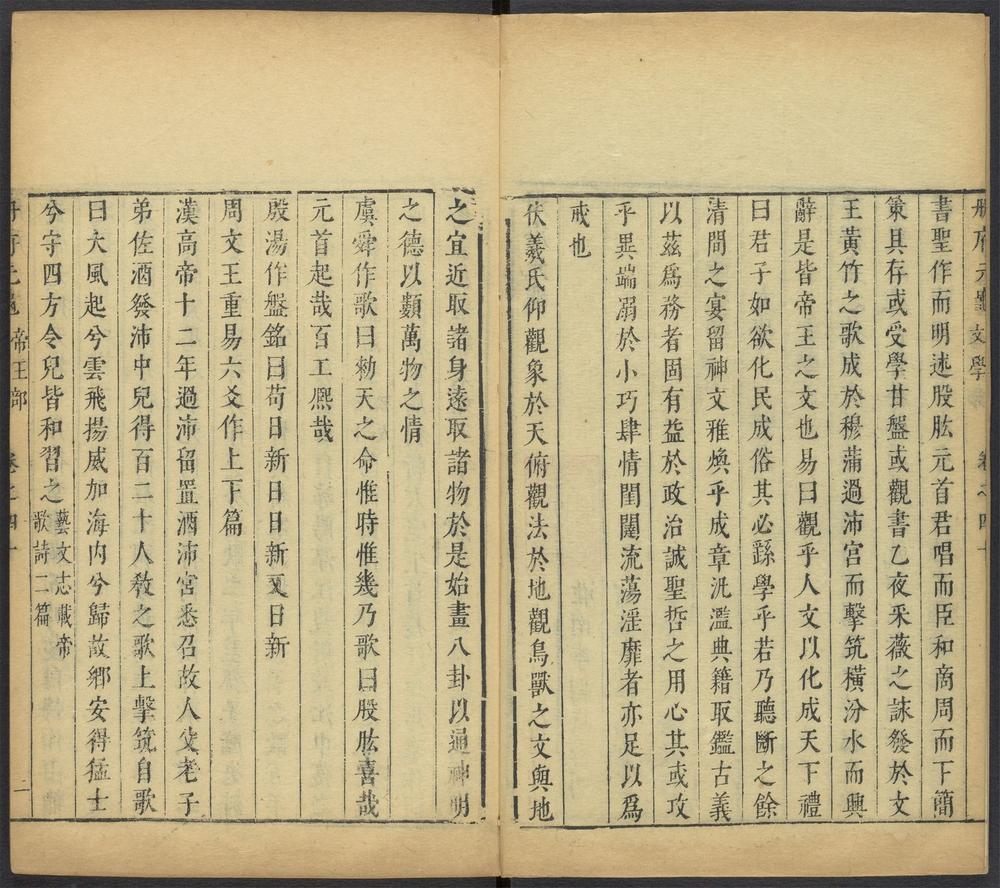 冊府元龜文學 卷之四十
書聖作而明述股肱元首君唱而臣和商周而下簡
策具存或受學甘盤或觀書乙夜采薇之詠發於文
王黃竹之歌成於穆蒲過沛宮而擊筑橫汾水而興
辭是皆帝王之文也易曰觀乎人文以化成天下禮
曰君子如欲化民成俗其必繇學乎若乃聽斷之餘
清閒之宴留神文雅煥乎成章汎濫典籍取鑑古義
以茲爲務者固有益於政治誠聖哲之用心其或攻
乎異端溺於小巧肆情閨闥流蕩淫靡者亦足以爲
戒也
伏羲氏仰觀象於天俯觀法於地觀鳥獸之文與地
之宜近取諸身遠取諸物於是始畫八卦以通神明
之德以類萬物之情
虞舜作歌曰勑天之命惟時惟幾乃歌曰股肱喜哉
元首起哉百工熈哉
殷湯作盤銘曰苟日新日日新又日新
周文王重易六爻作上下篇
漢高帝十二年過沛留置酒沛宮悉召故人父老子
弟佐酒發沛中兒得百二十人敎之歌上擊筑自歌
曰大風起兮雲飛揚威加海內兮歸故鄉安得猛士
兮守四方令兒皆和習之藝文志載帝歌詩二篇
冊府元龜 帝王部 卷之四十 二